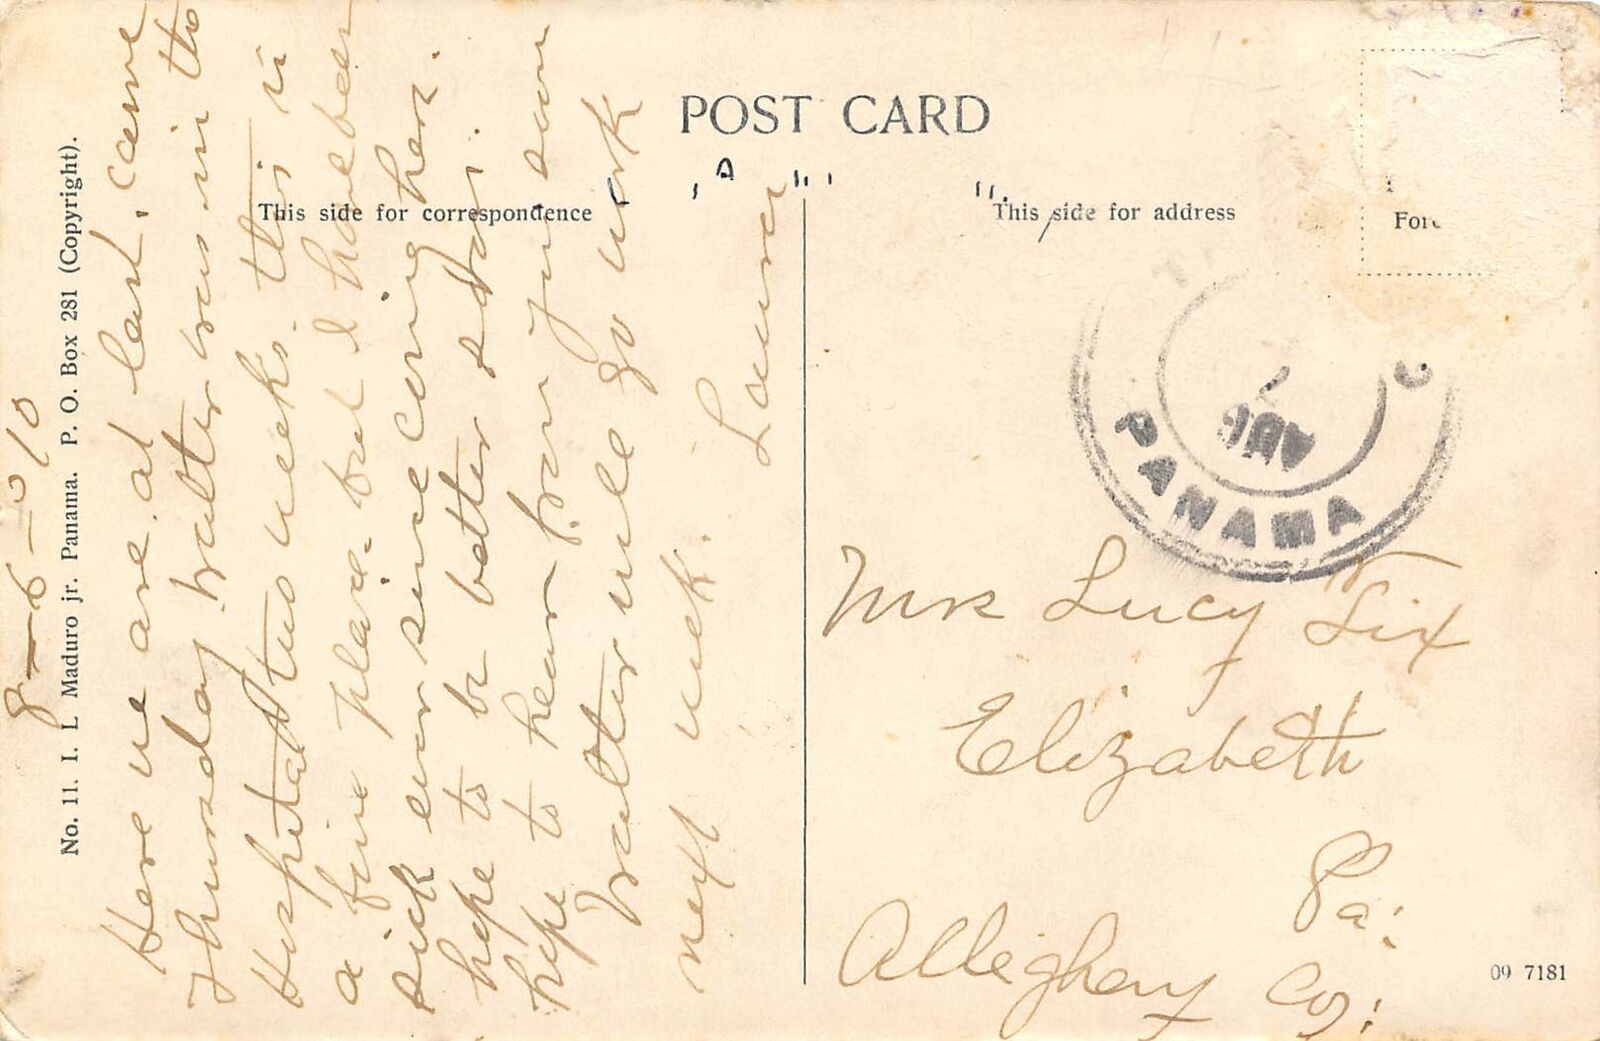 POST CARD
This side for correspondence
This side for address
No. 11. I. L Maduro jr. Panama. P. O. Box 281 (Copyright).
8-6-010
Here we are at last. came
Thursday. Walter was in the
Hospital two weeks. this is
a fine place. but I have been
sick ever since coming here.
hope to be better soon.
hope to hear from you soon
Walter will go to work
next week.
PANAMA
AUG
7
Mrs Lucy Fix
Elizabeth
Pa:
Allegheny Co:
09 7181